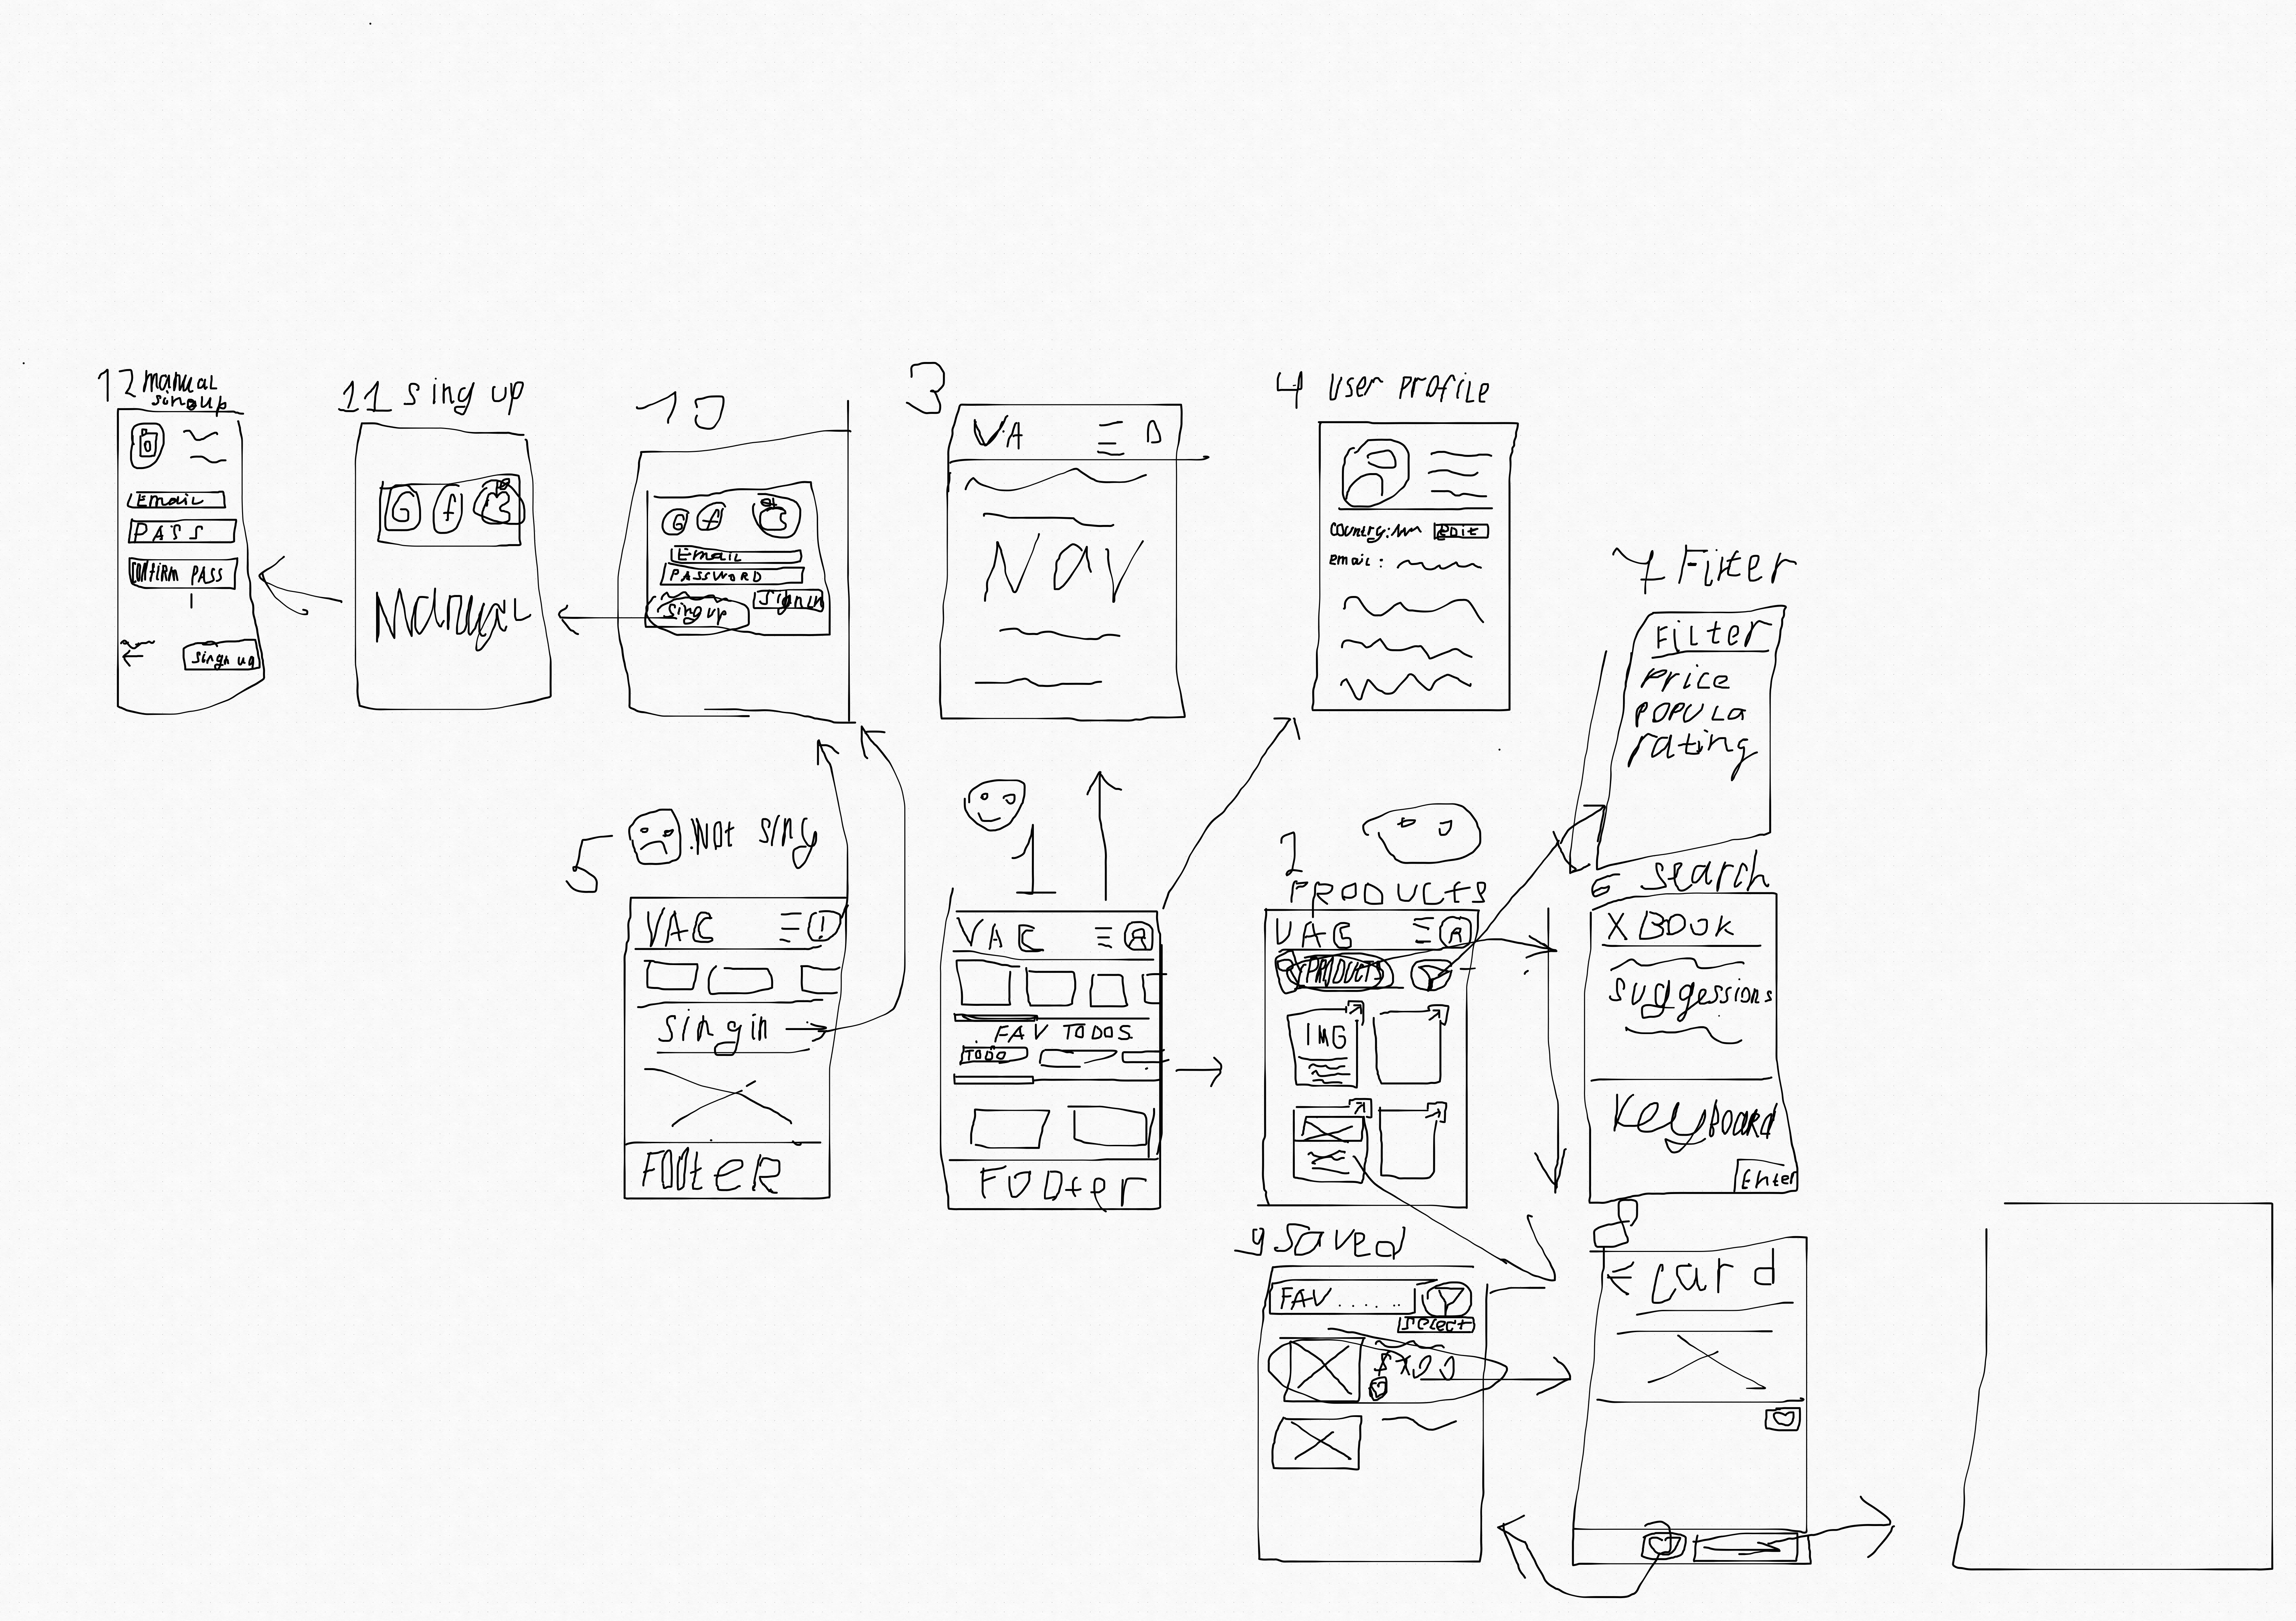 12 manual
singup
Email
PASS
CONFIRM PASS
singn up
11 sing up
G f
Manual
10
G f
Email
PASSWORD
sing up
Sign in
3
VA
Nav
4 User profile
country:
EDIT
email:
7 Filter
FiLter
Price
POPULa
rating
5
Not sing
VAC
singin
FOOtER
1
VAC
FAV TODOS
TODO
FOOter
2
PRODUCtS
VAC
PRODUCTS
IMG
6 search
X BOOK
suggessions
Keyboard
Enter
9 Saved
FAV......
select
8
Card